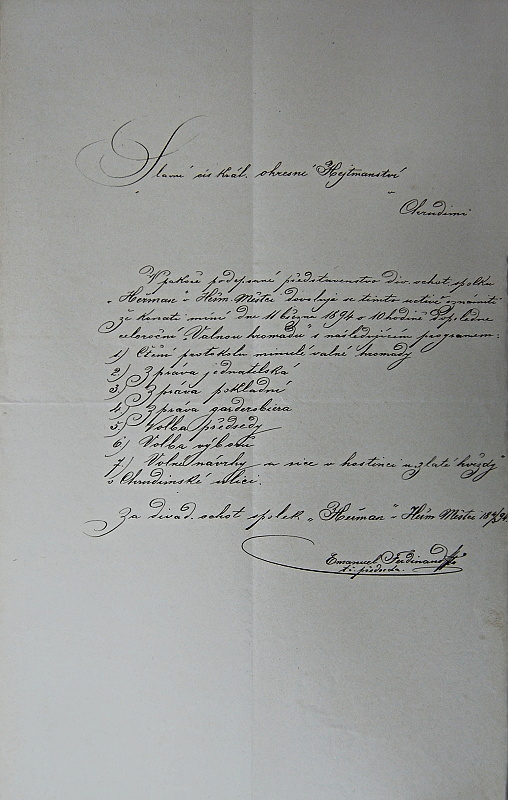 Slavné cís král. okresní Hejtmanství
v
Chrudimi
V pokoře podepsané představenstvo div. ochot. spolku
„Heřman" v Heřm. Městci dovoluje si tímto uctivě oznámiti
že konati míní dne 11 března 1894 o 10 hodině dopoledne
celoroční „Valnou hromadu" s následujícím programem:
1) Čtení protokolu minulé valné hromady
2) Zpráva jednatelská
3) Zpráva pokladní
4) Zpráva garderobiera
5) Volba předsedy
6) Volba výboru
7) Volné návrhy a sice v hostinci u „zlaté hvězdy"
v Chrudimské ulici.
Za divad. ochot spolek „Heřman" v Heřm Městci
Emanuel Ferdinand
předseda